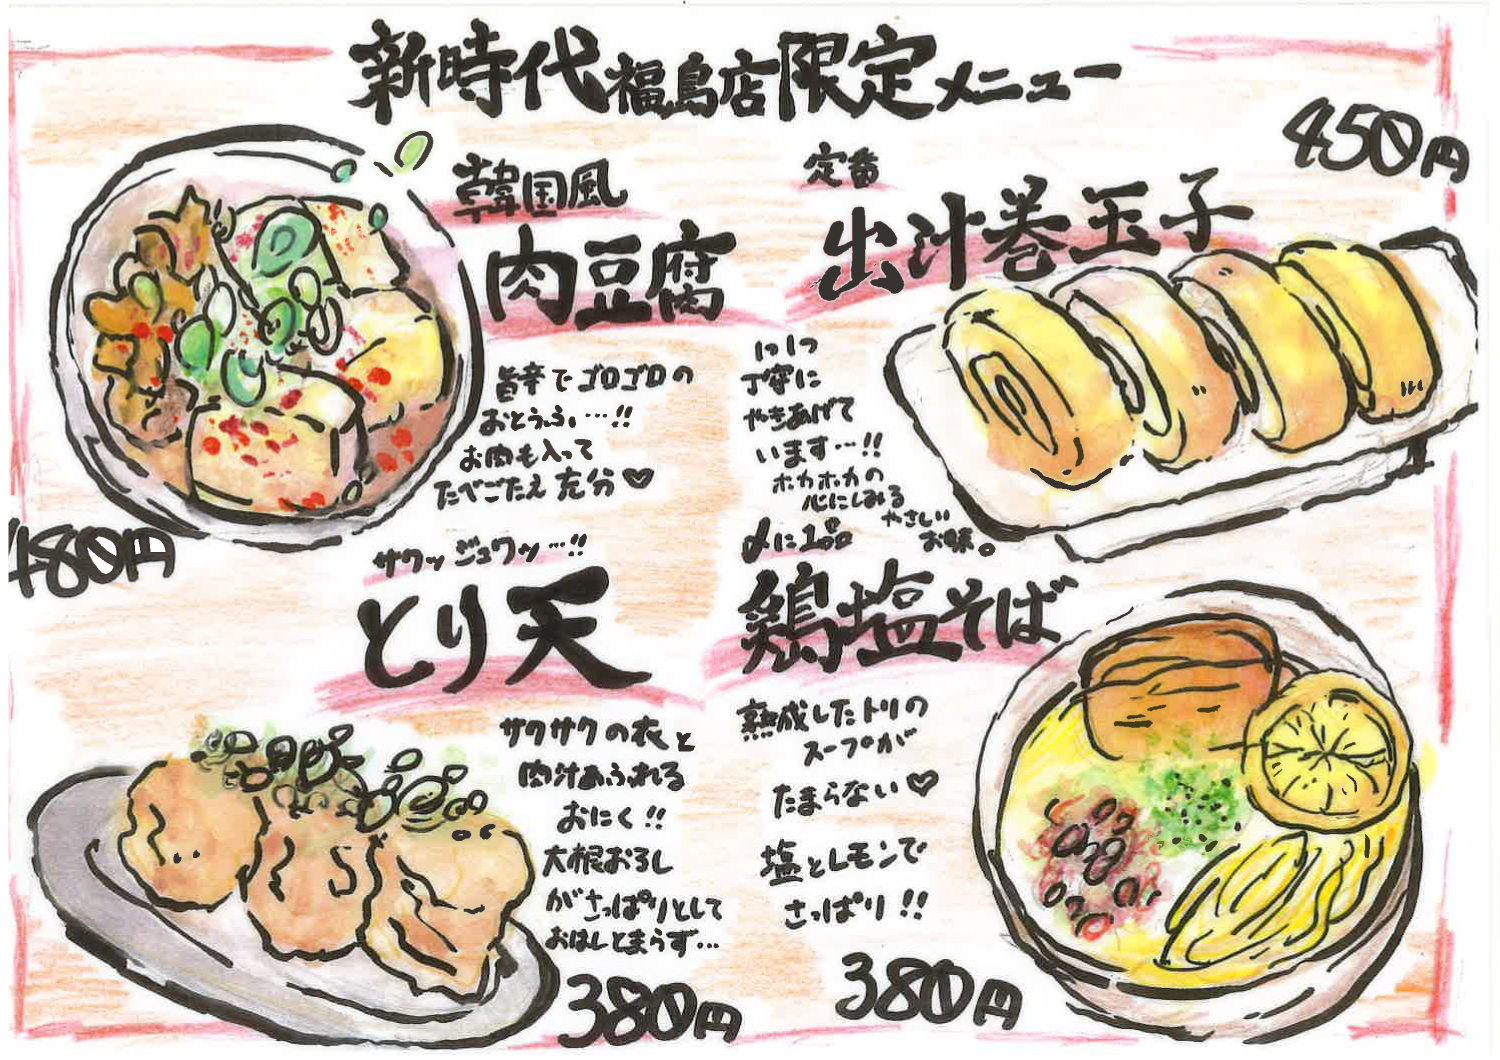 新時代福島店限定メニュー
韓国風
肉豆腐
旨辛でゴロゴロの
おとうふ…!!
お肉も入って
たべごたえ充分♡
480円
定番
出汁巻玉子
450円
1つ1つ
丁寧に
やきあげて
います…!!
ホカホカの
心にしみる
やさしい
お味。
サクッジュワッ…!!
とり天
サクサクの衣と
肉汁あふれる
おにく!!
大根おろし
がさっぱりとして
おはしとまらず…
380円
〆に1品
鶏塩そば
熟成したトリの
スープが
たまらない♡
塩とレモンで
さっぱり!!
380円